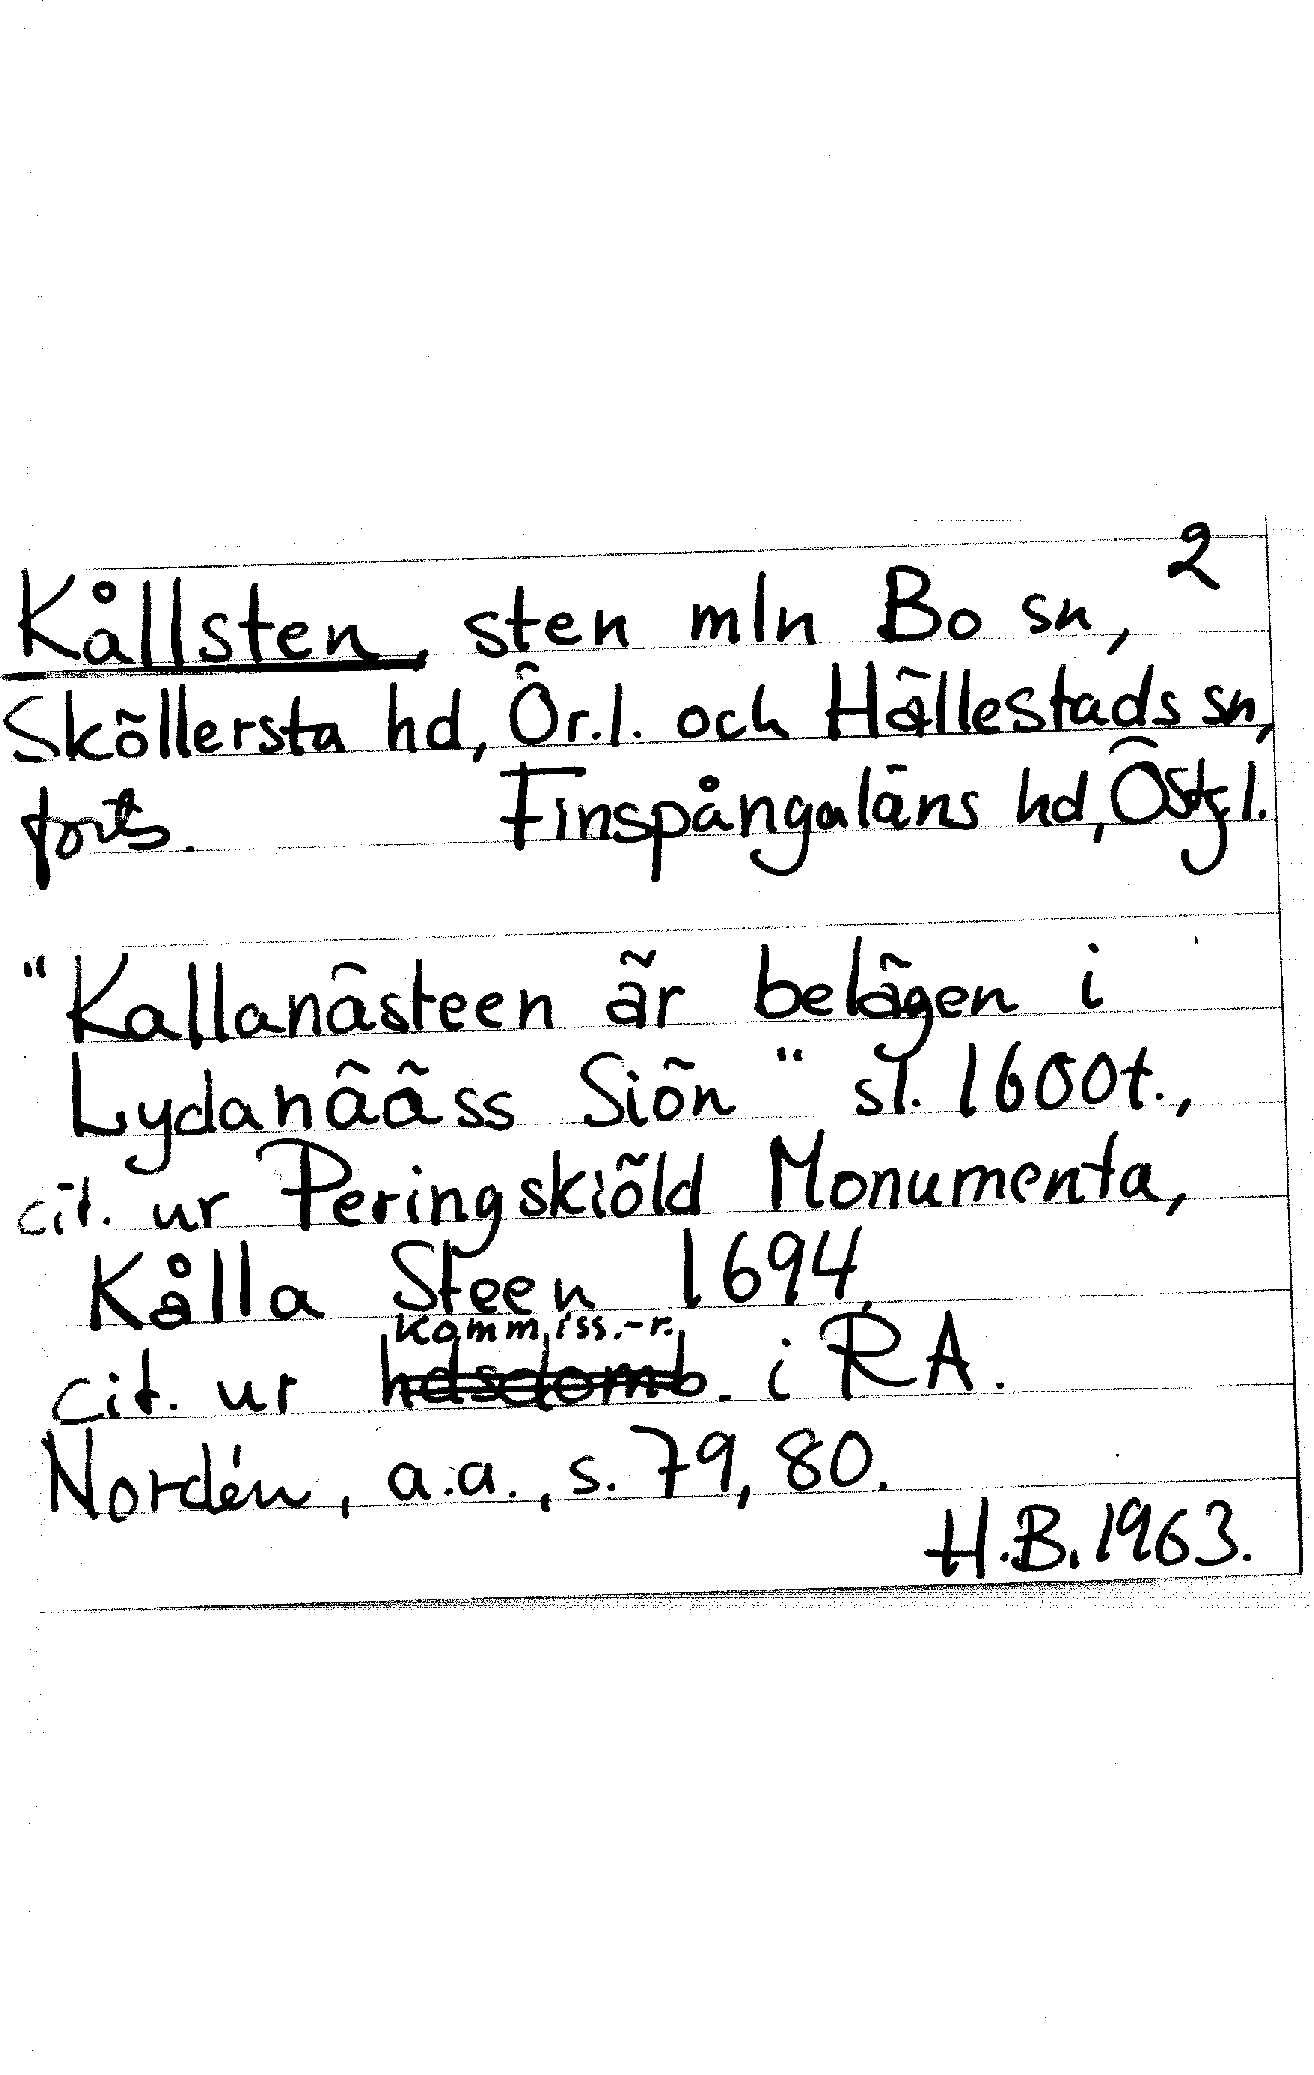 2
Kållsten, sten mln Bo sn,
Sköllersta hd, Ör.l. och Hällestads sn,
forts. Finspångaläns hd, Östg.l.
"Kallanästeen är belägen i
Lydanääss Siön" sl. 1600t.,
cit. ur Peringskiöld Monumenta,
Kålla Steen 1694,
kommiss.-r.
cit. ur hdsdomb. i RA.
Nordén, a.a., s. 79, 80.
H.B. 1963.